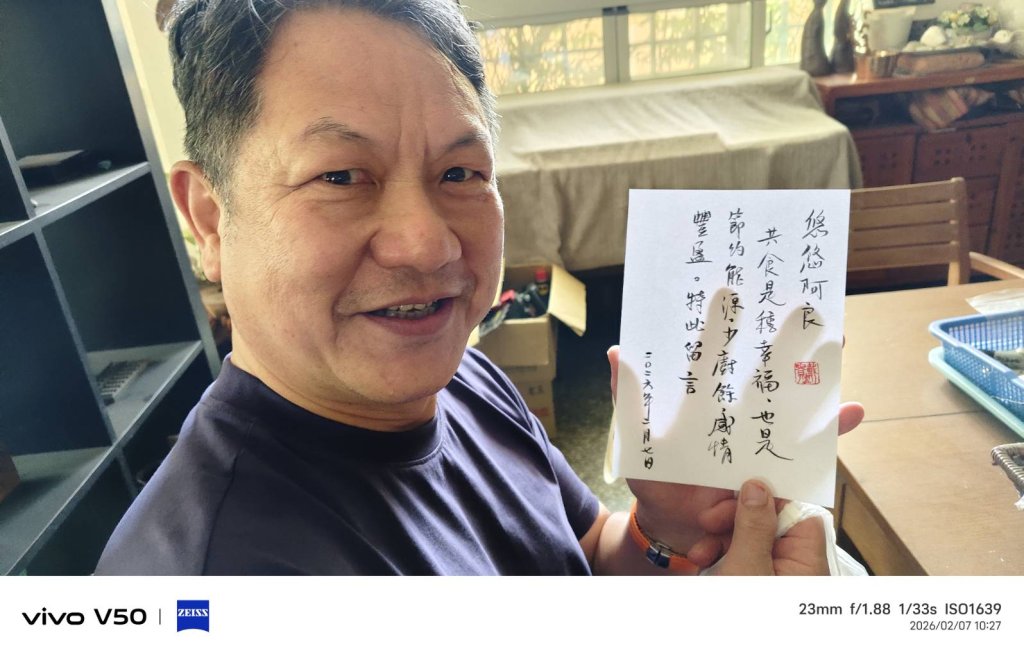 悠悠阿良
共食是穜幸福、也是
節約能源、少廚餘、感情
豐盛。特此留言
二〇二六年二月七日
vivo V50 | ZEISS
23mm f/1.88 1/33s ISO1639
2026/02/07 10:27